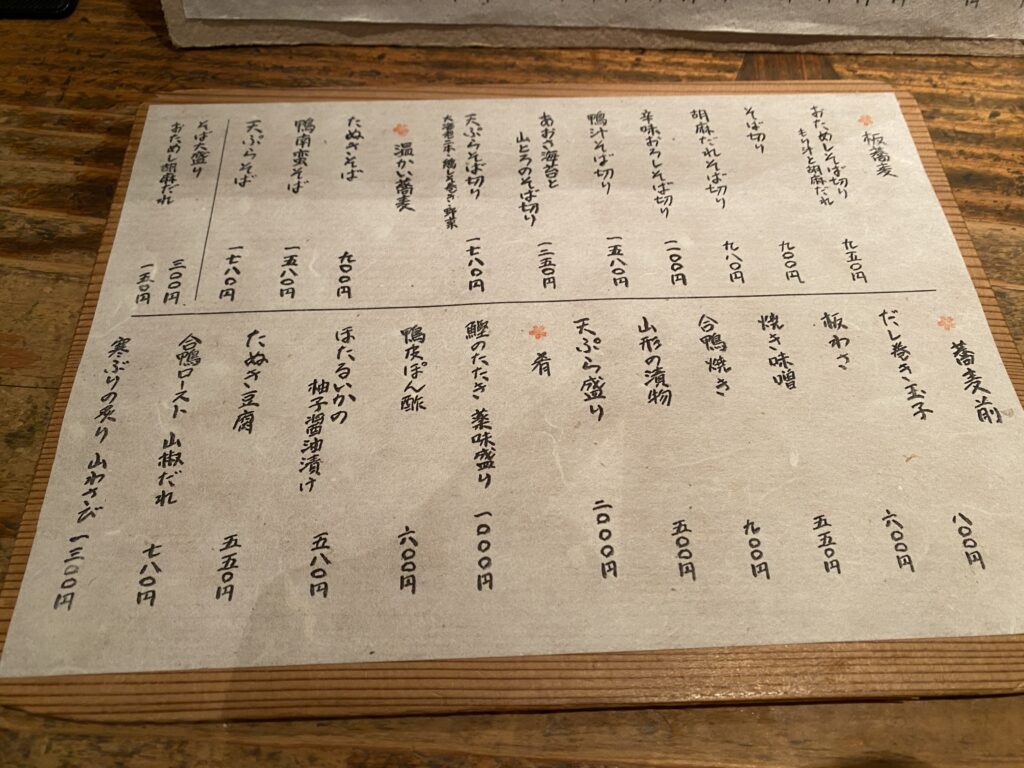 板蕎麦
おためしそば切り 九五〇円
もり汁と胡麻だれ
そば切り 九〇〇円
胡麻だれそば切り 九八〇円
辛味おろしそば切り 一一〇〇円
鴨汁そば切り 一五八〇円
あおさ海苔と
山とろのそば切り 一二五〇円
天ぷらそば切り 一七八〇円
大海老二本・鶏しそ巻き・野菜
温かい蕎麦
たぬきそば 九〇〇円
鴨南蛮そば 一五八〇円
天ぷらそば 一七八〇円
そば大盛り 三〇〇円
おためし胡麻だれ 一五〇円
蕎麦前 八〇〇円
だし巻き玉子 六〇〇円
板わさ 五五〇円
焼き味噌 九〇〇円
合鴨焼き
山形の漬物 五〇〇円
天ぷら盛り 二〇〇〇円
肴
鰹のたたき 薬味盛り 一〇〇〇円
鴨皮ぽん酢 六〇〇円
ほたるいかの
柚子醤油漬け 五八〇円
たぬき豆腐 五五〇円
合鴨ロースト 山椒だれ 七八〇円
寒ぶりの炙り 山わさび 一三〇〇円